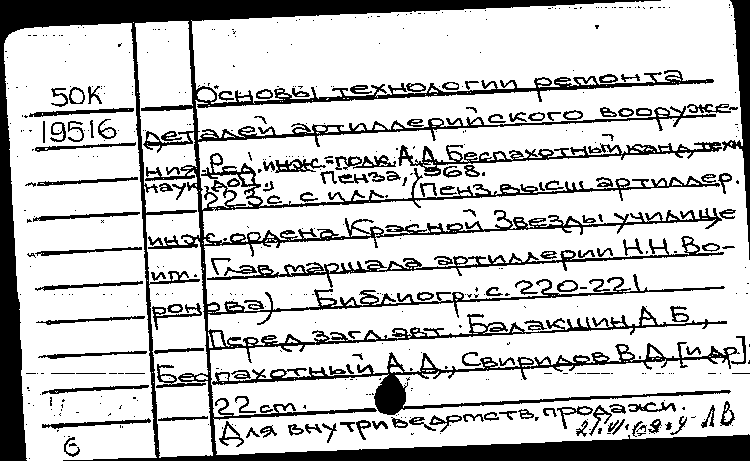 50К Основы технологии ремонта
19516 деталей артиллерийского вооруже-
ния. Ред. инж.-полк. А.Д. Беспахотный, канд. техн.
наук, доц., Пенза, 1968.
223с. с илл. (Пенз. высш. артиллер.
инж. ордена Красной Звезды училище
им. Глав. маршала артиллерии Н.Н. Во-
ронова). Библиогр.: с. 220-221.
Перед загл. авт.: Балакшин, А.Б.,
Беспахотный А.Д., Свиридов В.Д. [и др].
22 cm.
Для внутриведомств. продажи.
6 ЛВ